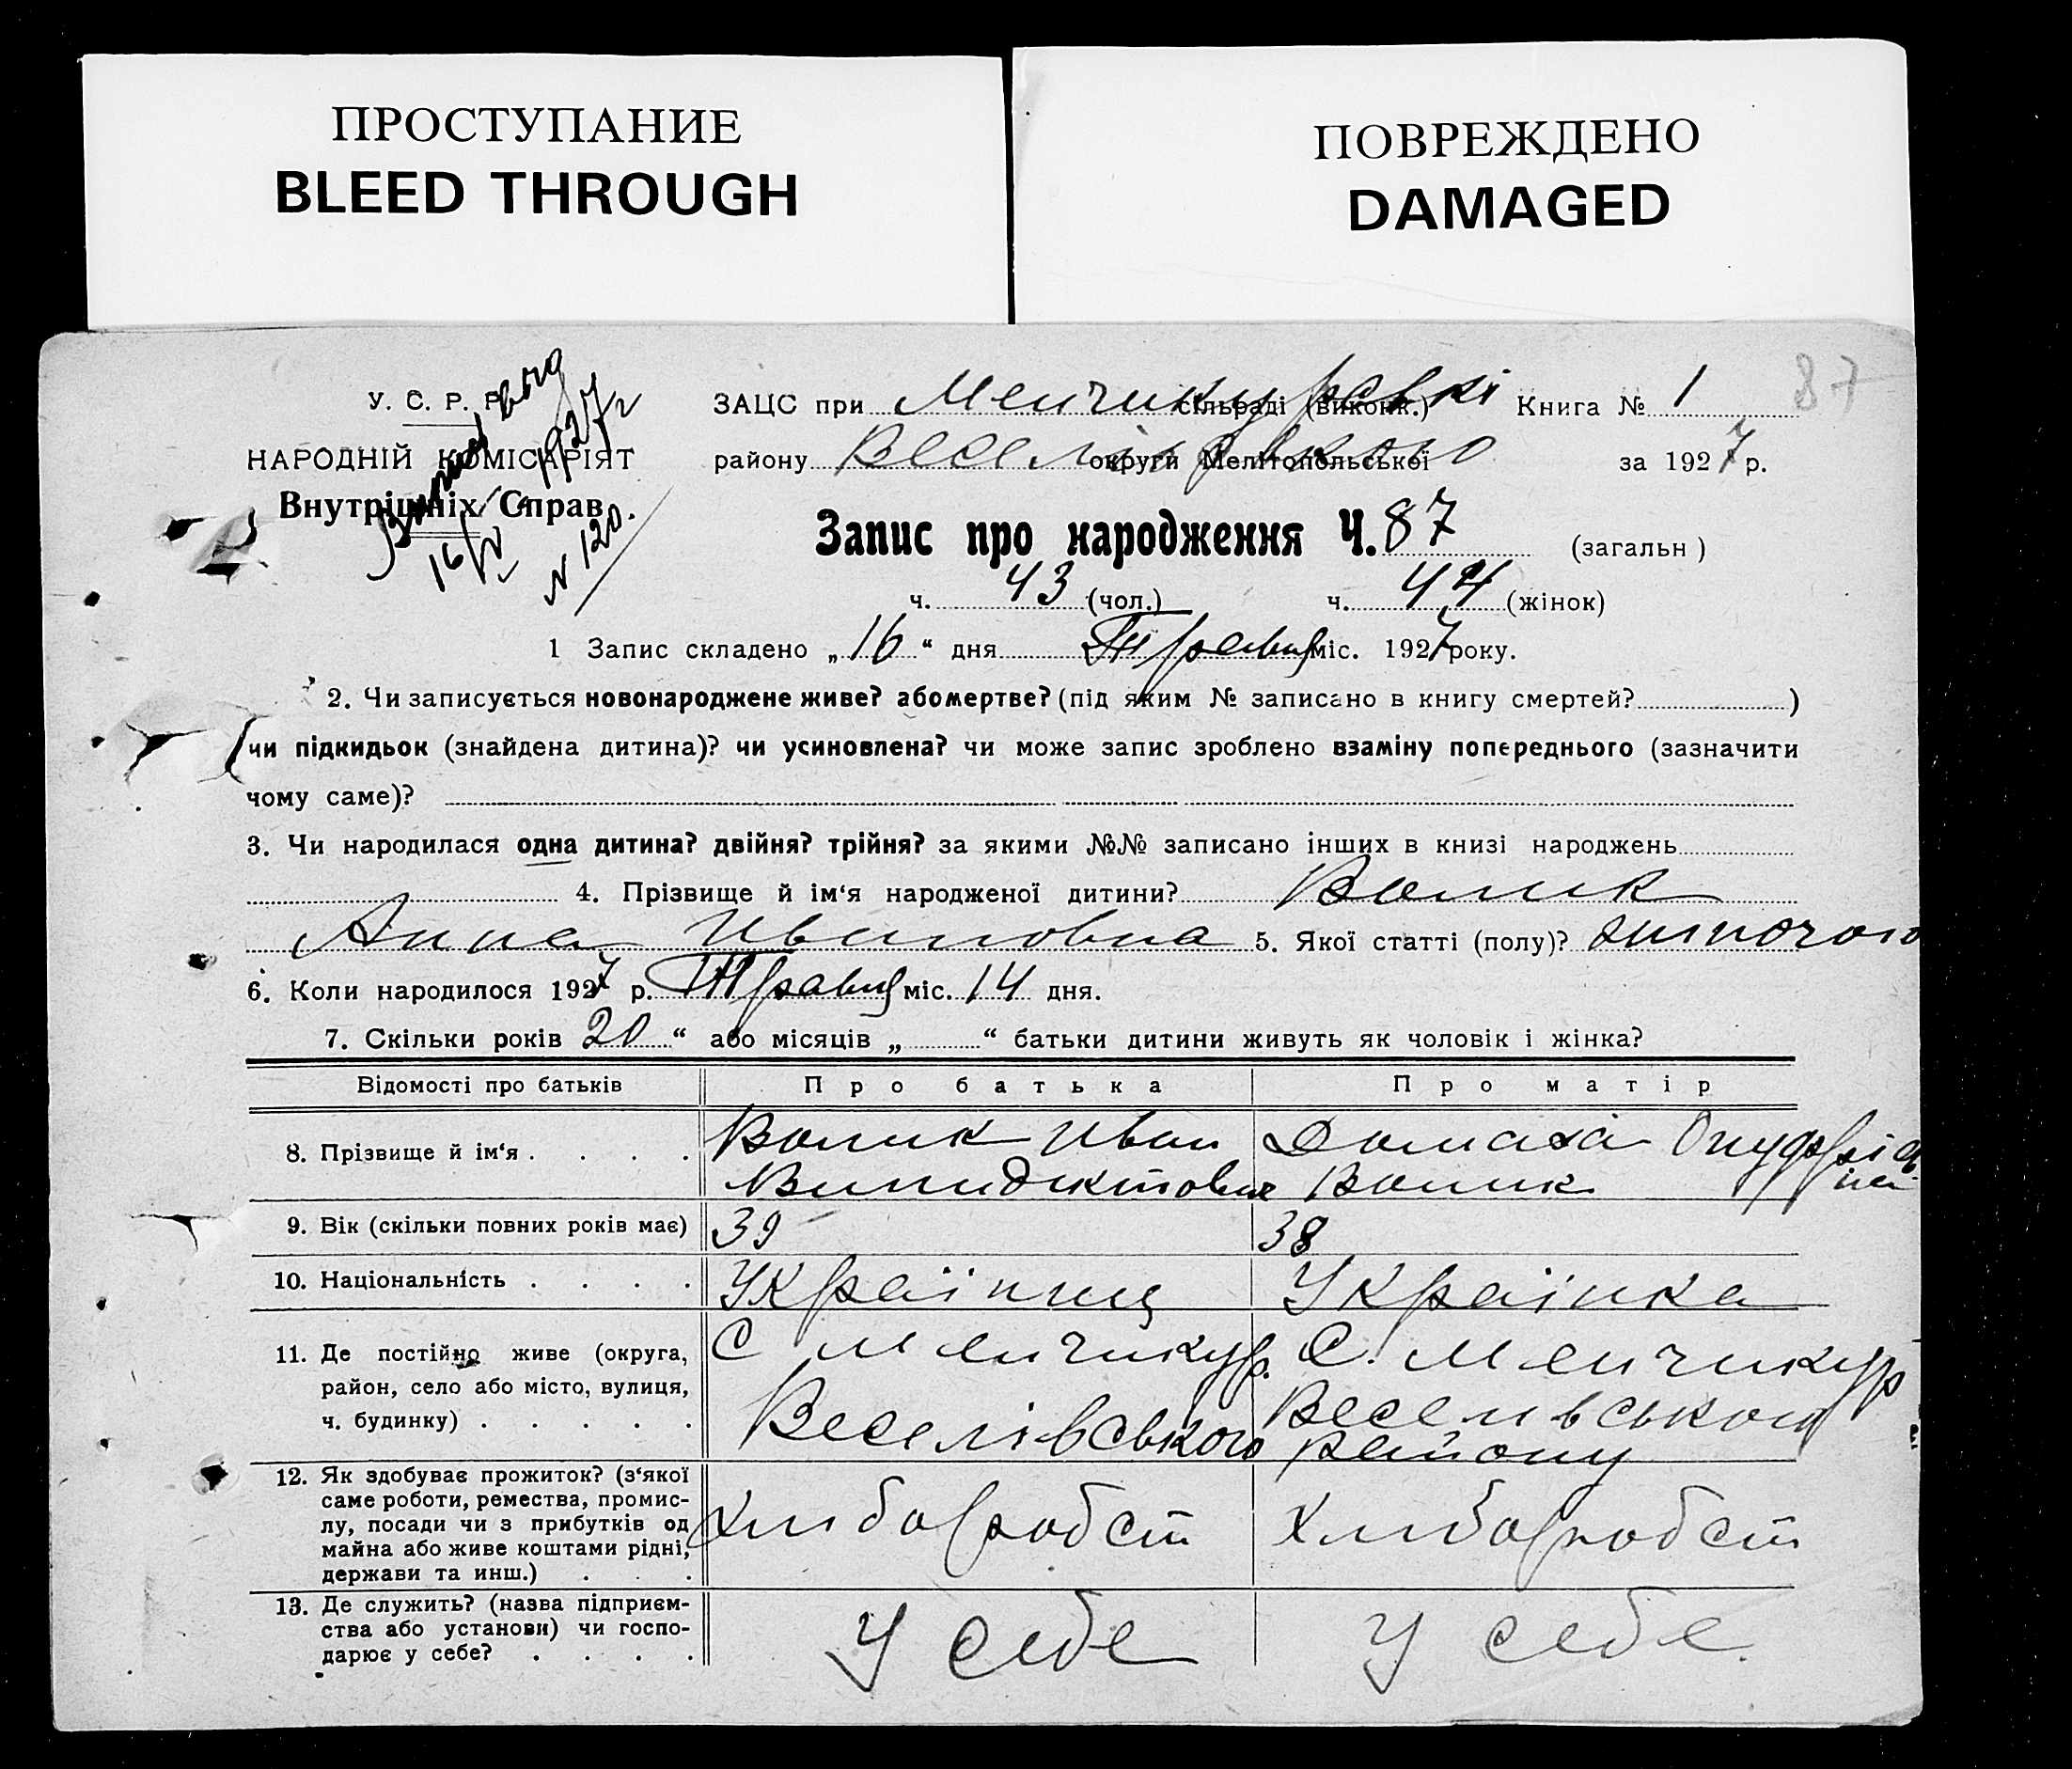 ПРОСТУПАНИЕ
BLEED THROUGH
ПОВРЕЖДЕНО
DAMAGED
У. С. Р. Р.
НАРОДНІЙ КОМІСАРІЯТ
Внутрішніх Справ.
16/V 1927 г
N 120.
ЗАЦС при Менчикурівскі сільраді (виконк.) Книга № 1 87
району Веселівського округи Мелітопольської за 1927 р.
Запис про народження Ч. 87 (загальн)
ч. 43 (чол.) ч. 44 (жінок)
1 Запис складено „16“ дня Травця міс. 1927 року.
2. Чи записується новонароджене живе? або мертве? (під яким № записано в книгу смертей? )
чи підкидьок (знайдена дитина)? чи усиновлена? чи може запис зроблено взаміну попереднього (зазначити
чому саме)?
3. Чи народилася одна дитина? двійня? трійня? за якими №№ записано інших в книзі народжень
4. Прізвище й ім‘я народженої дитини? Волик
Анна Ивановна 5. Якої статті (полу)? жиночого
6. Коли народилося 1927 р. Травця міс. 14 дня.
7. Скільки років 20 “ або місяців „ “ батьки дитини живуть як чоловік і жінка?
Відомості про батьків Про батька Про матір
8. Прізвище й ім‘я . . . . Волик Иван Домаха Онуфріє
Винидиктович Волик на
9. Вік (скільки повних років має) 39 38
10. Національність . . . . Українец Українка
11. Де постійно живе (округа, С Менчикур. С. Менчикур
район, село або місто, вулиця, Веселівського Веселивського
ч. будинку) . . . . . району
12. Як здобуває прожиток? (з‘якої
саме роботи, ремества, промис-
лу, посади чи з прибутків од Хлиборобст Хлиборобст
майна або живе коштами рідні,
держави та инш.) . . .
13. Де служить? (назва підприєм-
ства або установи) чи госпо- У себе У себе
дарює у себе? . . . .